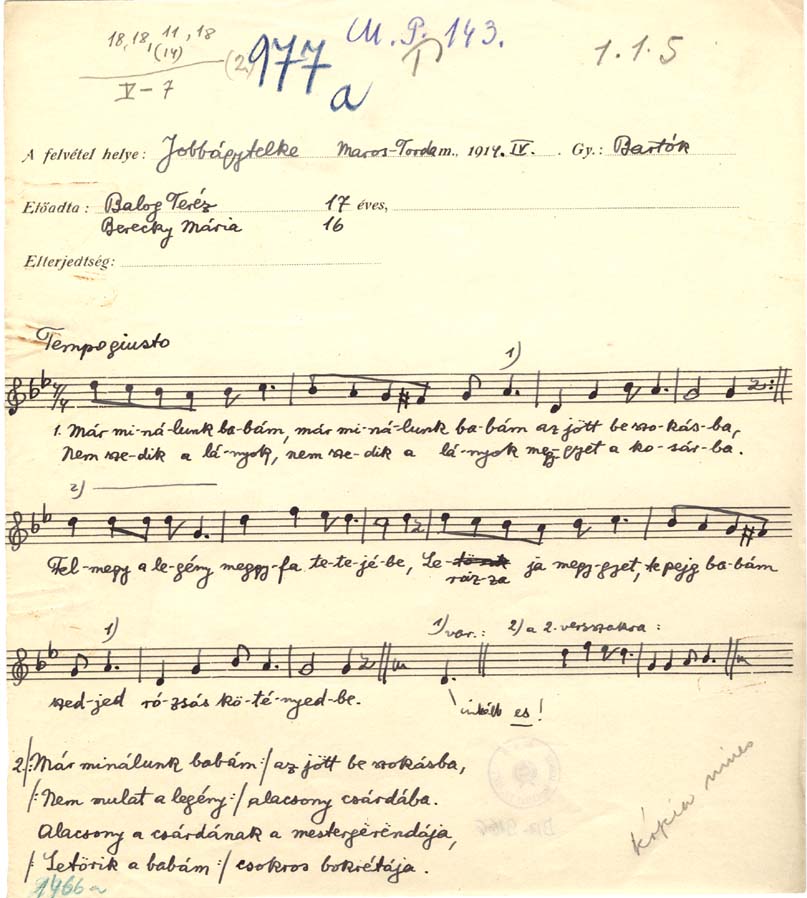 18, 18, 11, 18
(14)
V-7
(2)
977
a
M. P. 143.
I
1.1.5
A felvétel helye: Jobbágytelke Maros-Torda m., 1914. IV. Gy.: Bartók
Előadta: Balog Teréz 17 éves,
Berecky Mária 16
Elterjedtség:
Tempo giusto
1)
1. Már mi-ná-lunk ba-bám, már mi-ná-lunk ba-bám az jött be szo-kás-ba,
Nem sze-dik a lá-nyok, nem sze-dik a lá-nyok megy-gyet a ko-sár-ba.
2)
Fel-megy a le-gény meggy-fa te-te-jé-be, Le-ráz-za ja megy-gyet, te pejg ba-bám
1) 1) var.: 2) a 2. versszakra:
szed-jed ró-zsás kö-té-nyed-be.
inkább es!
2. /: Már minálunk babám :/ az jött be szokásba,
/: Nem mulat a legény :/ alacsony csárdába.
Alacsony a csárdának a mestergerendája,
/: Letörik a babám :/ csokros bokrétája.
1466 a
Kópia nincs